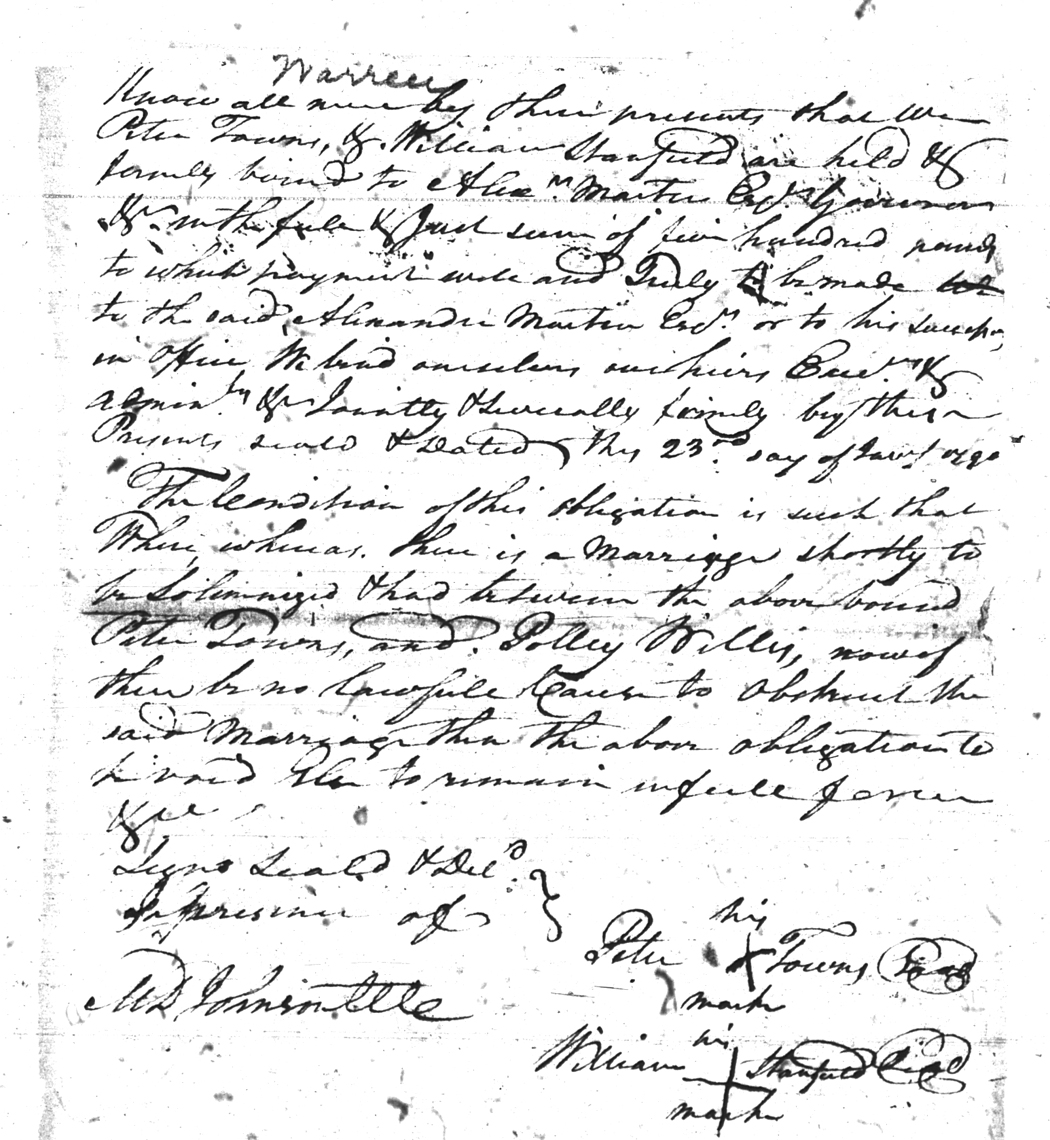 Warren
Know all men by these presents that We
Peter Towns, & William Stanfield are held &
formly bound to Alexr. Martin Esqr. Governor
&c. in the full & Just sum of five hundred pounds
to which payment well and Truly to be made
to the said, Alexander Martin Esqr. or to his Successors,
in office We bind ourselves our heirs Execrs. &
admintrs. &c Jointly & Severally firmly by these
Presents seald & Dated this 23rd. day of Jany. 1790
The Condition of this obligation is such that
When, whereas. there is a Marriage shortly to
be Solemnized & had between the above bound
Peter Towns, and. Polley Willis, now if
there be no lawfull Cause to Obstruct the
said Marriage then the above obligation to
be void Else to remain in full force
&c
Signd Seald & Deld.
In presence of
M D Johnson
his
Peter X Towns Seal
mark
his
William X Stanfield Seal
mark